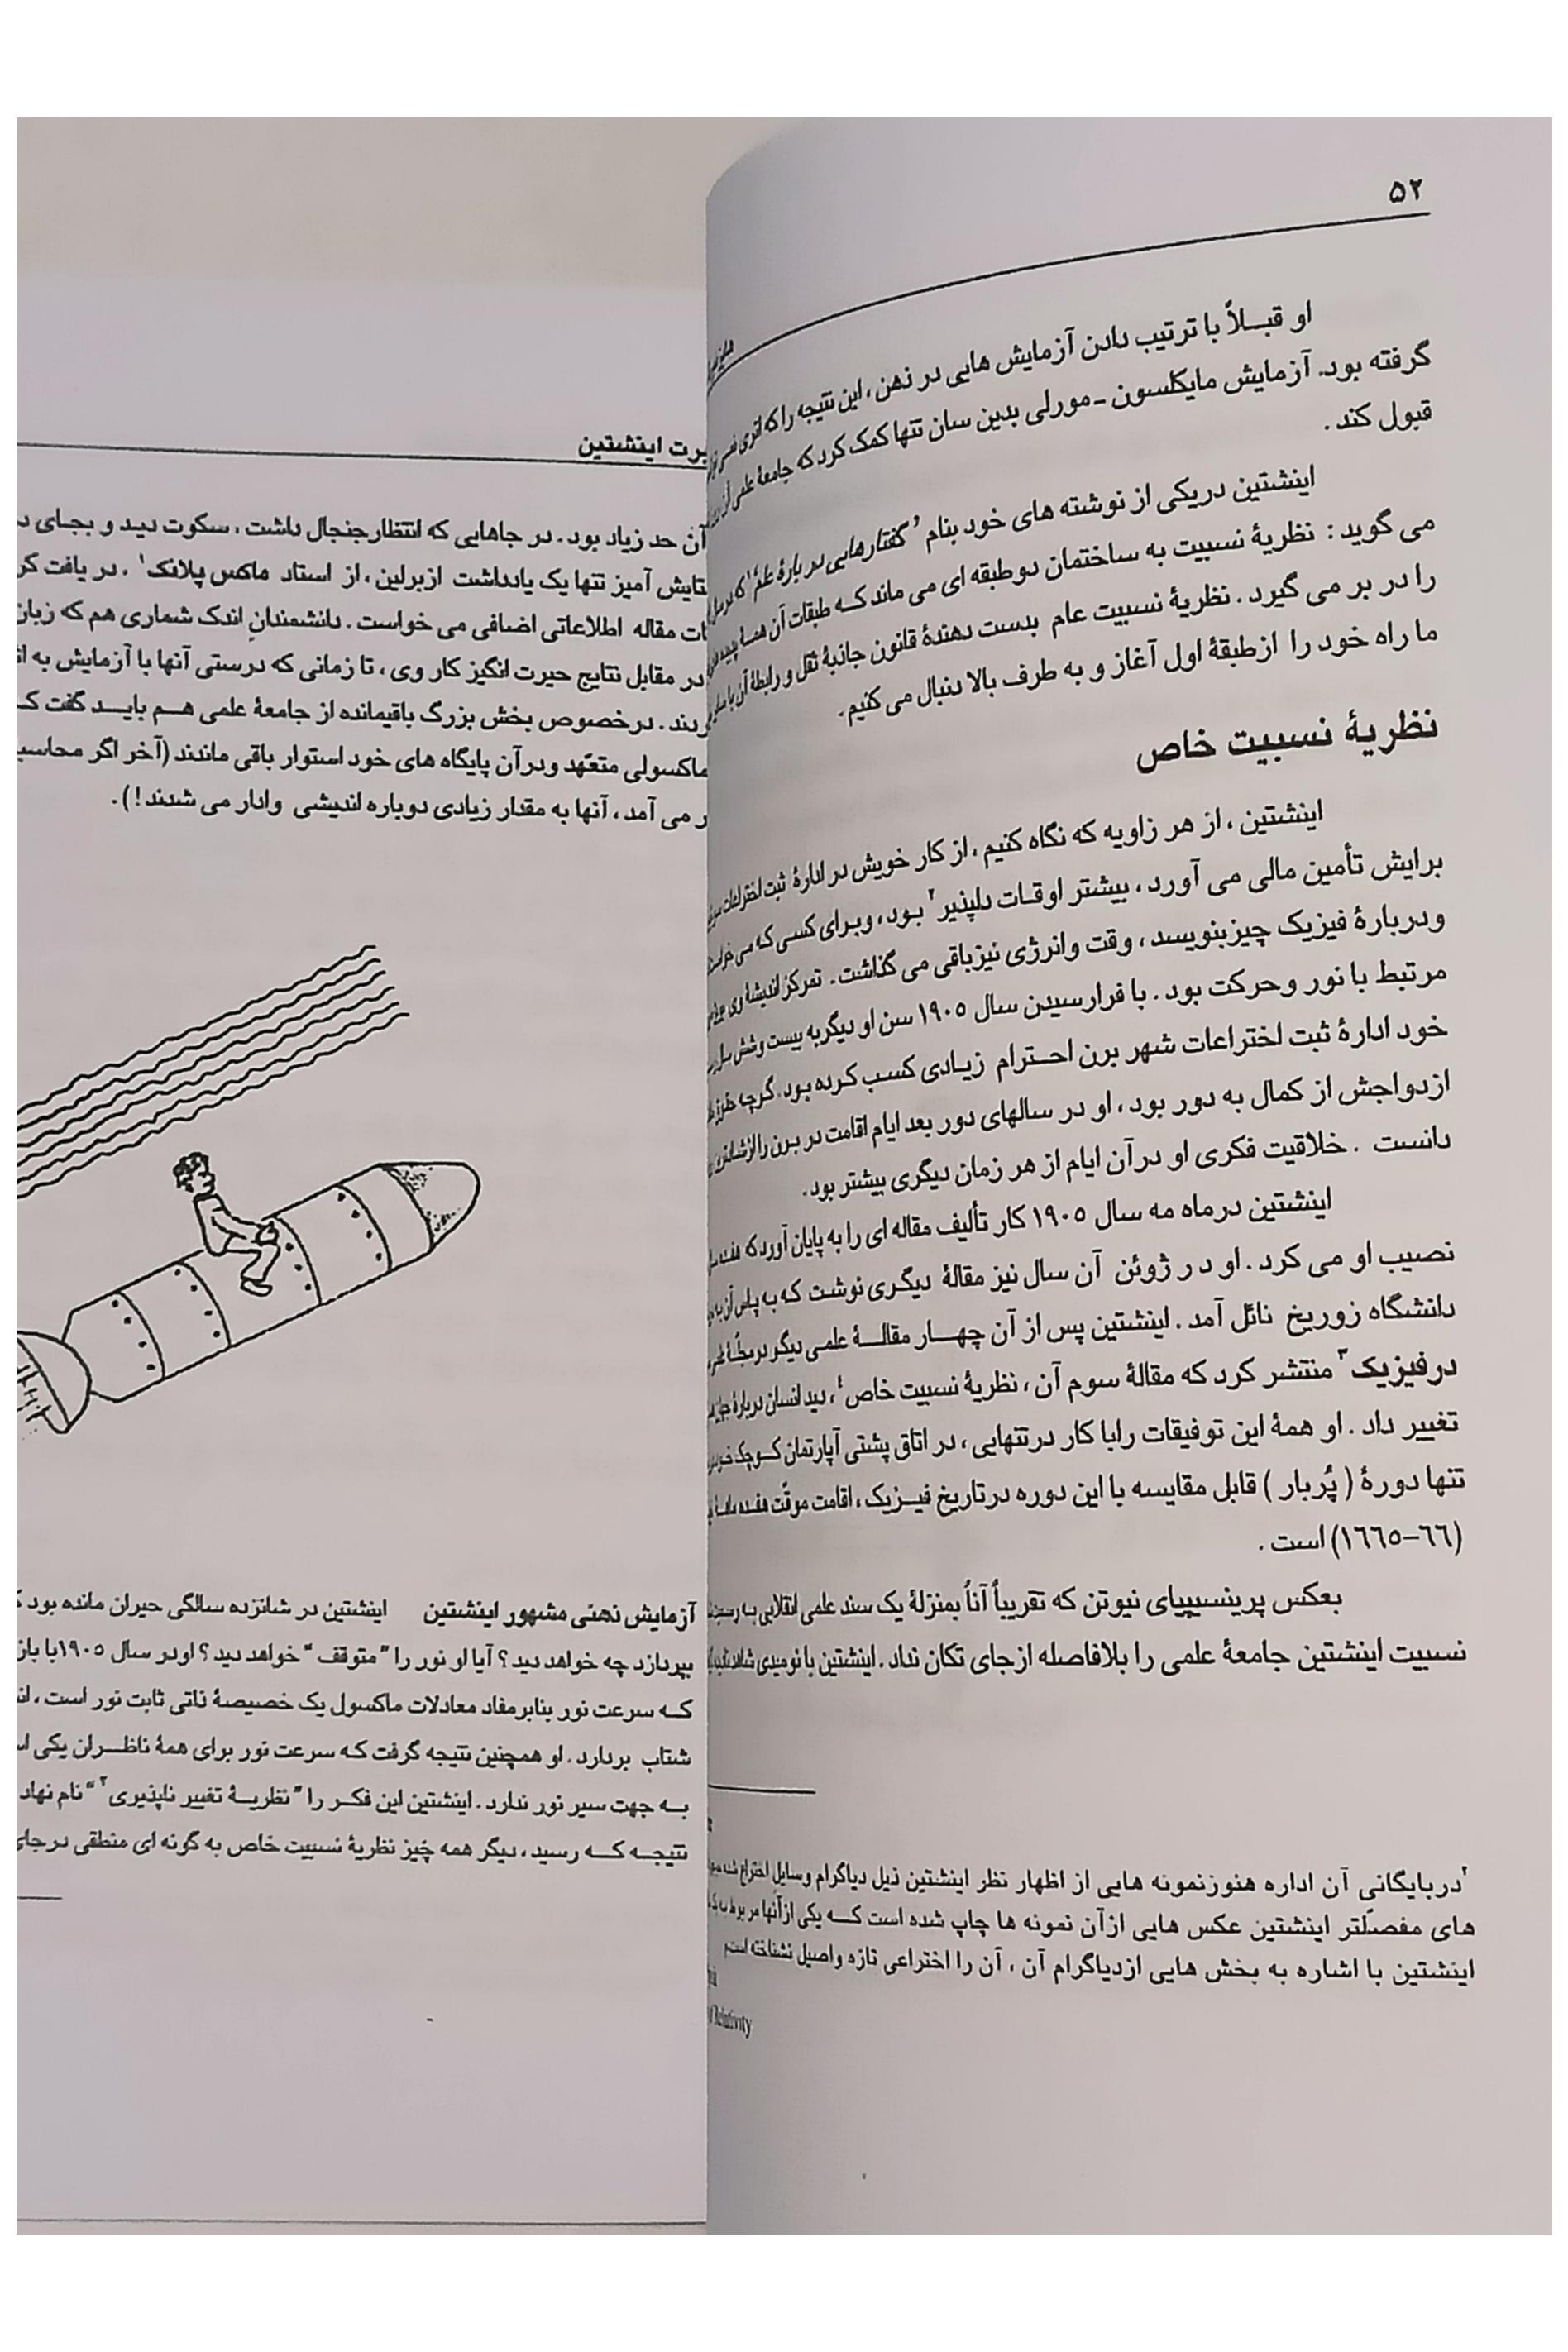 ۵۲
او قبلاً با ترتیب دادن آزمایش هایی در ذهن ، این نتیجه را که اتری نمی
گرفته بود. آزمایش مایکلسون - مورلی بدین سان تنها کمک کرد که جامعهٔ علمی آن
قبول کند .
اینشتین دریکی از نوشته های خود بنام "گفتارهایی در بارهٔ علم" که در سال
می گوید : نظریهٔ نسبیت به ساختمان دوطبقه ای می ماند که طبقات آن همهٔ
را در بر می گیرد . نظریهٔ نسبیت عام بدست دهندهٔ قانون جاذبهٔ ثقل و رابطهٔ آن با سایر
ما راه خود را ازطبقهٔ اول آغاز و به طرف بالا دنبال می کنیم .
نظریهٔ نسبیت خاص
اینشتین ، از هر زاویه که نگاه کنیم ، از کار خویش در ادارهٔ ثبت اختراعات
برایش تأمین مالی می آورد ، بیشتر اوقات دلپذیر۲ بود ، وبرای کسی که می خواست
ودربارهٔ فیزیک چیزبنویسد ، وقت وانرژی نیزباقی می گذاشت . تمرکز اندیشهٔ وی
مرتبط با نور وحرکت بود . با فرارسیدن سال ۱۹۰۵ سن او دیگربه بیست وشش سال
خود ادارهٔ ثبت اختراعات شهر برن احترام زیادی کسب کرده بود . گرچه حقوق
ازدواجش از کمال به دور بود ، او در سالهای دور بعد ایام اقامت در برن را
دانست . خلاقیت فکری او درآن ایام از هر زمان دیگری بیشتر بود .
اینشتین درماه مه سال ۱۹۰۵ کار تألیف مقاله ای را به پایان آورد که هفده
نصیب او می کرد . او د ر ژوئن آن سال نیز مقالهٔ دیگری نوشت که به پاس آن
دانشگاه زوریخ نائل آمد . اینشتین پس از آن چهار مقالهٔ علمی دیگر در مجلهٔ
درفیزیک۳ منتشر کرد که مقالهٔ سوم آن ، نظریهٔ نسبیت خاص۴ ، دید انسان دربارهٔ
تغییر داد . او همهٔ این توفیقات رابا کار درتنهایی ، در اتاق پشتی آپارتمان کوچک
تنها دورهٔ ( پُربار ) قابل مقایسه با این دوره درتاریخ فیزیک ، اقامت موقّت هفده ماههٔ
(۱٦٦۵-٦٦) است .
بعکس پرینسیپیای نیوتن که تقریباً آناً بمنزلهٔ یک سند علمی انقلابی به
نسبیت اینشتین جامعهٔ علمی را بلافاصله ازجای تکان نداد . اینشتین با نومیدی شاهد
۲دربایگانی آن اداره هنوزنمونه هایی از اظهار نظر اینشتین ذیل دیاگرام وسایل اختراع شده
های مفصّلتر اینشتین عکس هایی ازآن نمونه ها چاپ شده است که یکی ازآنها مربوط به
اینشتین با اشاره به بخش هایی ازدیاگرام آن ، آن را اختراعی تازه واصیل نشناخته است
Relativity
برت اینشتین
آن حد زیاد بود . در جاهایی که انتظارجنجال داشت ، سکوت دید و بجای
ستایش آمیز تنها یک یادداشت ازبرلین ، از استاد ماکس پلانک۱ ، در یافت
مقاله اطلاعاتی اضافی می خواست . دانشمندانِ اندک شماری هم که
در مقابل نتایج حیرت انگیز کار وی ، تا زمانی که درستی آنها با آزمایش به
درخصوص بخش بزرگ باقیمانده از جامعهٔ علمی هم باید گفت
ماکسولی متعّهد ودرآن پایگاه های خود استوار باقی ماندند (آخر اگر
می آمد ، آنها به مقدار زیادی دوباره اندیشی وادار می شدند !) .
آزمایش ذهنی مشهور اینشتین اینشتین در شانزده سالگی حیران مانده بود
بپردازد چه خواهد دید ؟ آیا او نور را "متوقف" خواهد دید ؟ اودر سال ۱۹۰۵با
که سرعت نور بنابرمفاد معادلات ماکسول یک خصیصهٔ ذاتی ثابت نور است ،
شتاب بردارد . او همچنین نتیجه گرفت که سرعت نور برای همهٔ ناظران یکی
به جهت سیر نور ندارد . اینشتین این فکر را "نظریهٔ تغییر ناپذیری۲" نام نهاد
نتیجه که رسید ، دیگر همه چیز نظریهٔ نسبیت خاص به گونه ای منطقی درجای